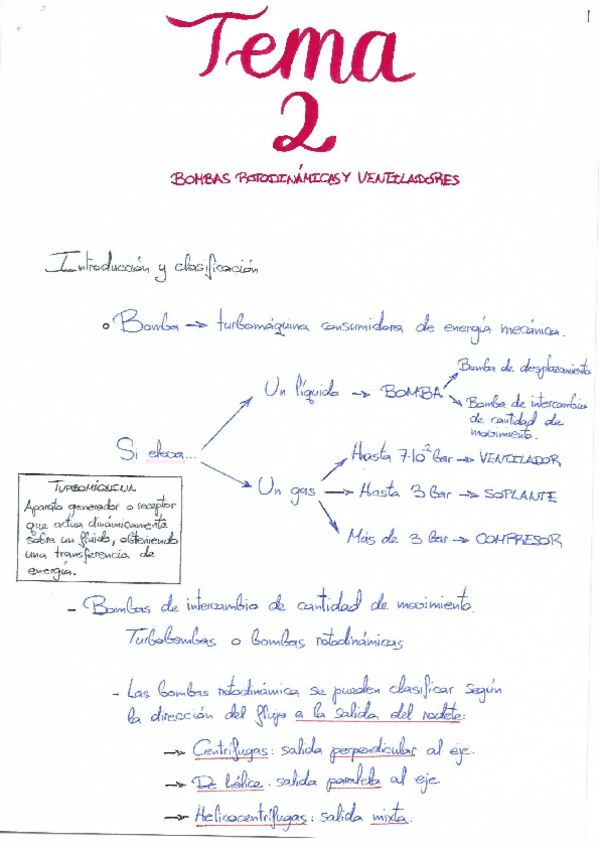 1
Tema
2
BOMBAS ROTODINÁMICAS Y VENTILADORES
Introducción y clasificación
Bomba → turbomáquina consumidora de energía mecánica.
Bomba de desplazamiento
Un líquido → BOMBA
Bomba de intercambio
de cantidad de
movimiento.
Si eleva...
Hasta 7·10⁻² bar → VENTILADOR
Un gas → Hasta 3 bar → SOPLANTE
Más de 3 bar → COMPRESOR
TURBOMÁQUINA
Aparato generador o receptor
que actua dinámicamente
sobre un fluido, obteniendo
una transferencia de
energía.
- Bombas de intercambio de cantidad de movimiento.
Turbobombas o bombas rotodinámicas
- Las bombas rotodinámica se pueden clasificar según
la dirección del flujo a la salida del rodete:
→ Centrífugas: salida perpendicular al eje.
→ De hélice. salida paralela al eje.
→ Helicocentrífugas: salida mixta.